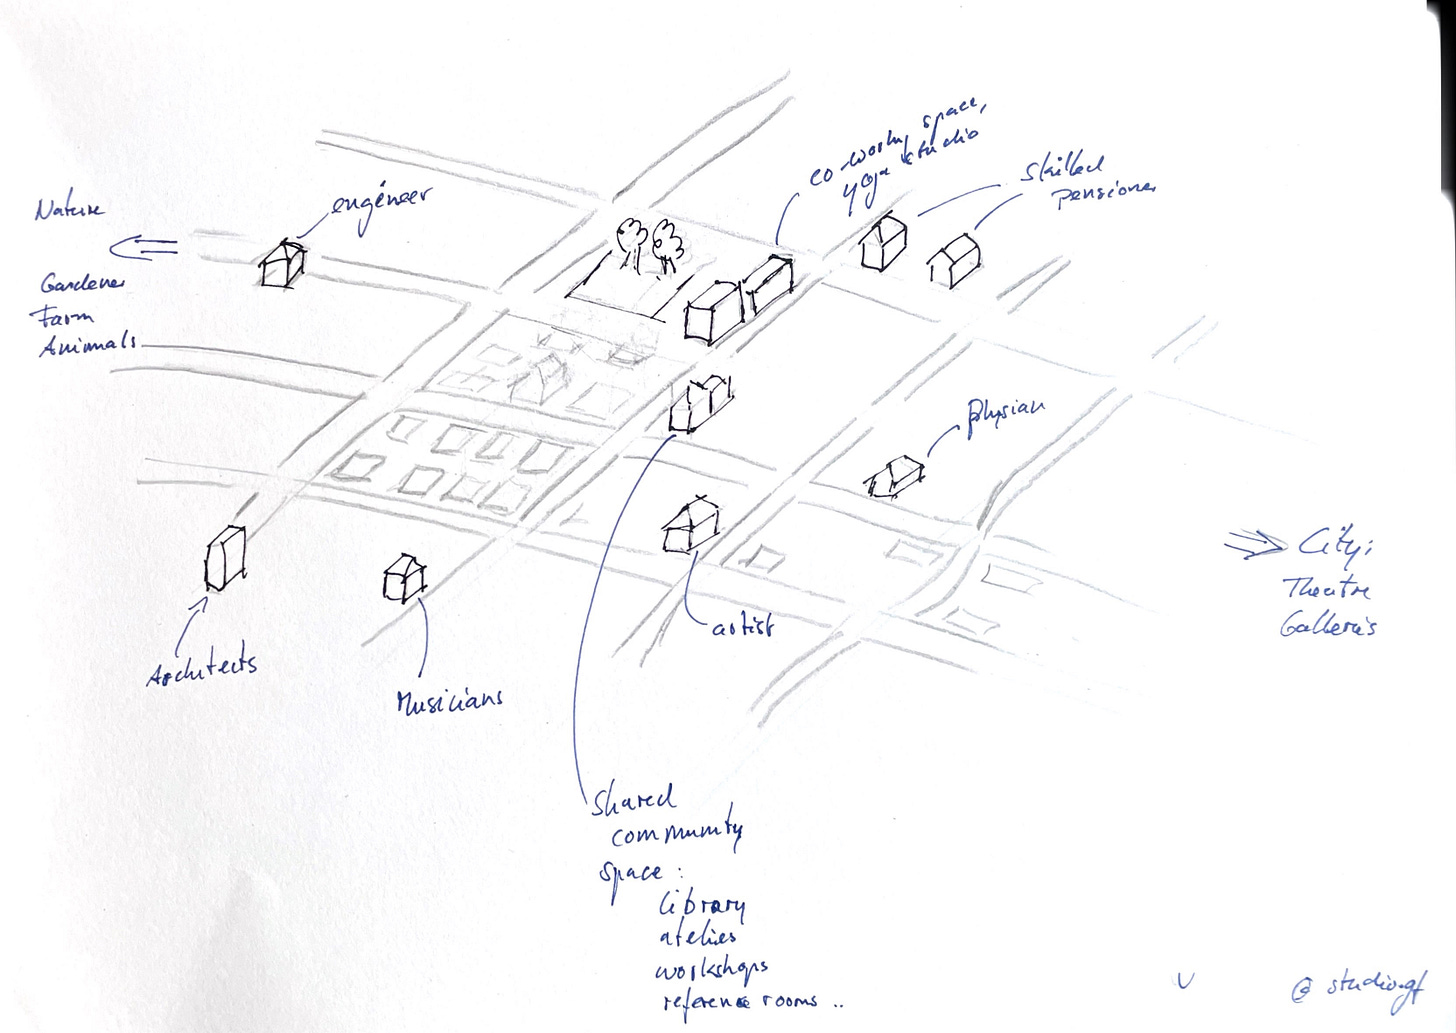 co-workg space,
yoga studio
skilled
pensioner
Nature
engineer
Gardener
Farm
Animals
physian
City:
Theatre
Galleries
artist
Architects
Musicians
Shared
community
space:
library
atelies
workshops
reference rooms ..
@ studiogf